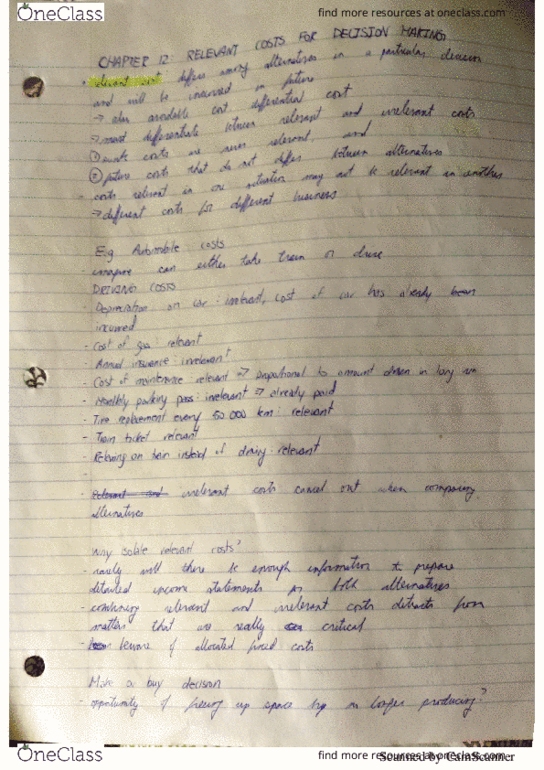 OneClass
find more resources at oneclass.com
CHAPTER 12: RELEVANT COSTS FOR DECISION MAKING
- relevant cost differs among alternatives in a particular decision
and will be incurred in future
→ also avoidable cost differential cost
→ must differentiate between relevant and irrelevant costs
① sunk costs are never relevant, and
② future costs that do not differ between alternatives
- costs relevant in one situation may not be relevant in another
→ different costs for different business
E.g Automobile costs
- imagine can either take train or drive
DRIVING COSTS
- Depreciation on car: irrelevant, cost of car has already been
incurred
- Cost of gas: relevant
- Annual insurance: irrelevant
- Cost of maintenance: relevant → proportional to amount driven in long run
- Monthly parking pass: irrelevant → already paid
- Tire replacement every 50 000 km: relevant
- Train ticket relevant
- Relaxing on train instead of driving: relevant
- irrelevant costs cancel out when comparing
alternatives
Why isolate relevant costs?
- rarely will there be enough information to prepare
detailed income statements for both alternatives
- combining relevant and irrelevant costs detracts from
matters that are really critical
- beware of allocated fixed costs
Make or buy decision
- opportunity of freeing up space by no longer producing?
OneClass
find more resources at oneclass.com
Scanned by CamScanner